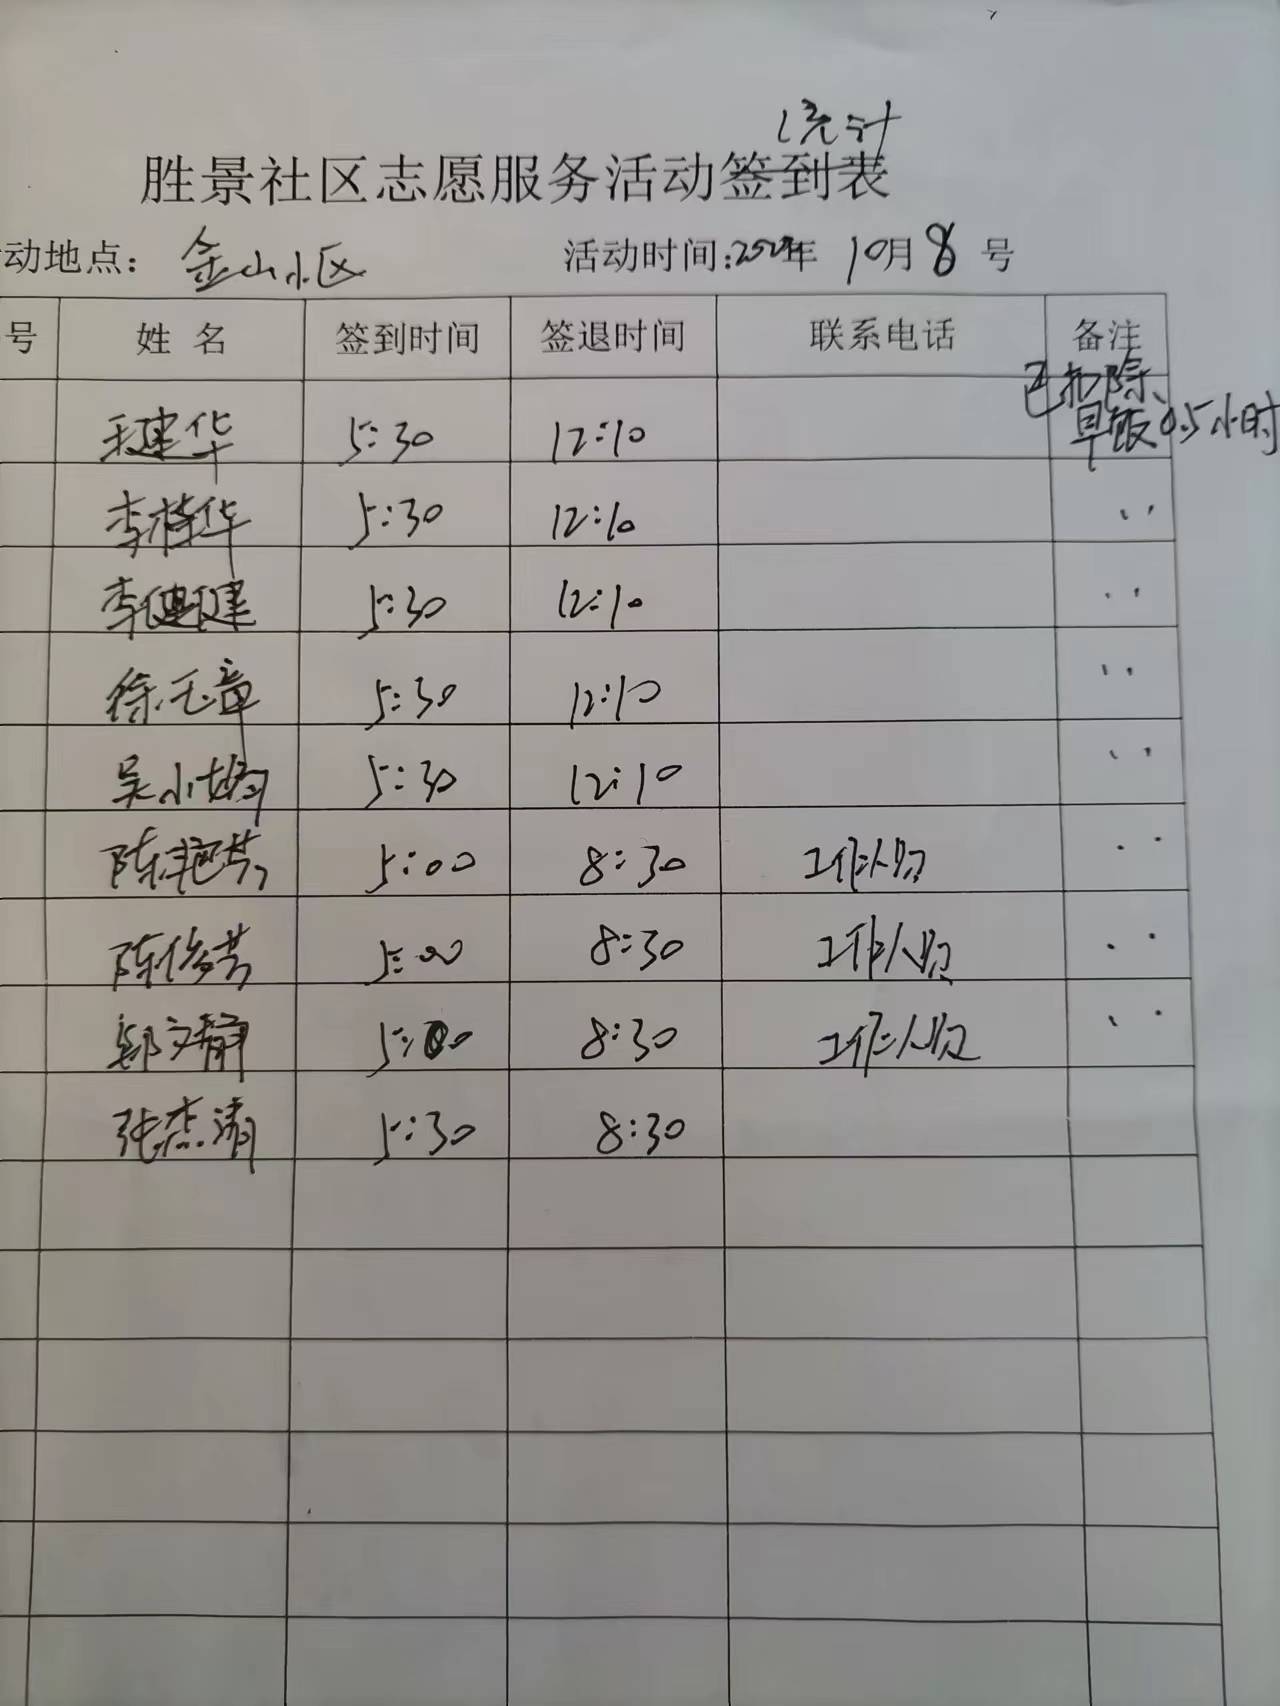 统计
胜景社区志愿服务活动签到表
动地点: 金山小区 活动时间: 年 10月8号
号 姓名 签到时间 签退时间 联系电话 备注
已扣除
早饭0.5小时
建华 5:30 12:10
李桂华 5:30 12:10 ''
李健健 5:30 12:10 ''
徐玉章 5:30 12:10 ''
吴小娟 5:30 12:10 ''
陈艳芬 5:00 8:30 工作人员 ''
陈修芬 5:00 8:30 工作人员 ''
郑文静 5:00 8:30 工作人员 ''
张杰清 5:30 8:30